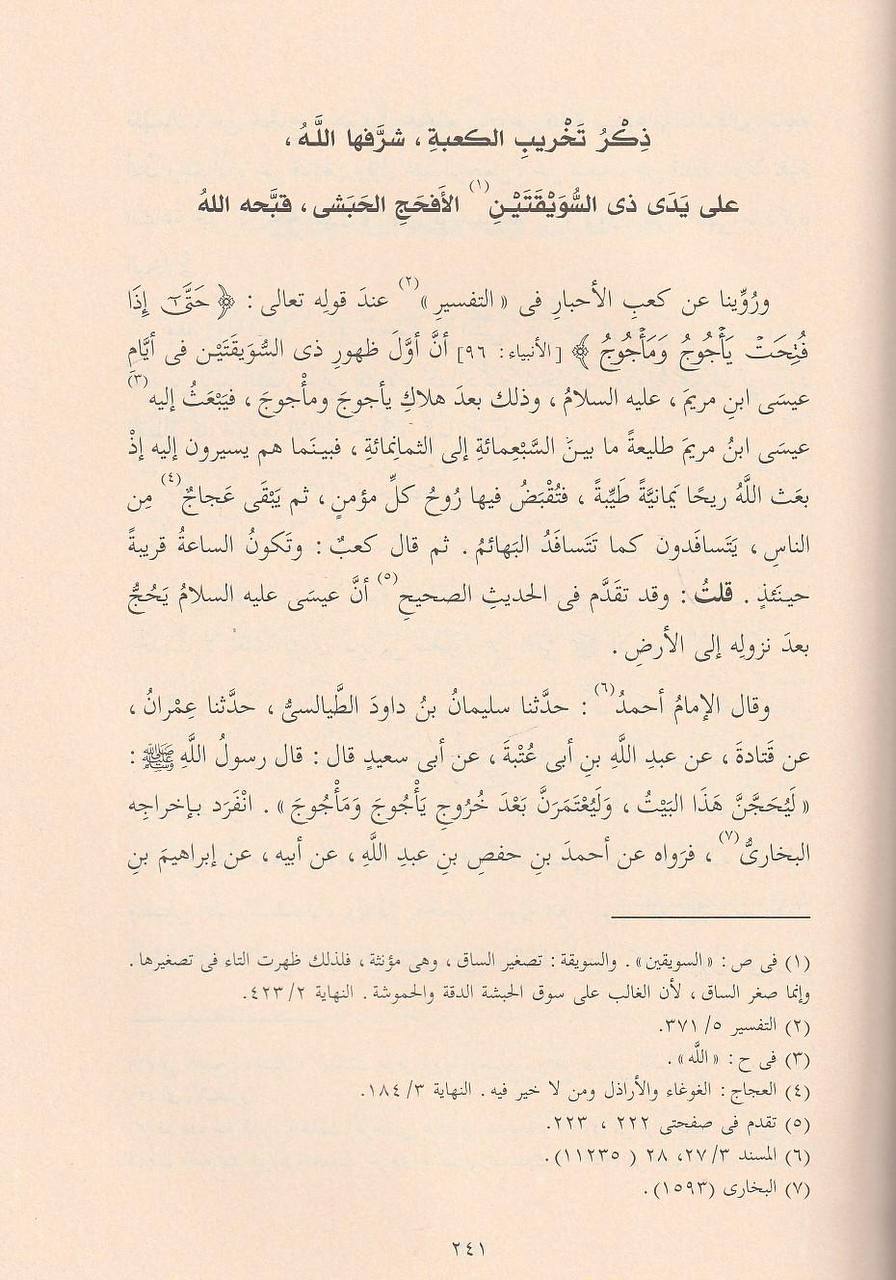 ذِكْرُ تَخْريبِ الكعبةِ، شرَّفها اللَّهُ،
على يَدَى ذى السُّوَيْقَتَيْنِ(١) الأَفحَجِ الحَبَشى، قبَّحه اللهُ
ورُوِّينا عن كعبِ الأحبارِ فى «التفسيرِ»(٢) عندَ قولِه تعالى: ﴿ حَتَّىٰٓ إِذَا
فُتِحَتْ يَأْجُوجُ وَمَأْجُوجُ ﴾ [الأنبياء: ٩٦] أنَّ أوَّلَ ظهورِ ذى السُّوَيقَتَيْن فى أيَّامِ
عيسَى ابنِ مريمَ، عليه السلامُ، وذلك بعدَ هلاكِ يأجوجَ ومأْجوجَ، فيَبْعَثُ إليه(٣)
عيسَى ابنُ مريمَ طليعةً ما بينَ السَّبْعِمائةِ إلى الثمانِمائةِ، فبينَما هم يسيرون إليه إذْ
بعَث اللَّهُ ريحًا يَمانيَّةً طَيِّبةً، فتُقْبَضُ فيها رُوحُ كلِّ مؤمنٍ، ثم يَبْقَى عَجاجٌ(٤) مِن
الناسِ، يَتَسافَدون كما تَتَسافَدُ البَهائمُ. ثم قال كعبٌ: وتَكونُ الساعةُ قريبةً
حينَئذٍ. قلتُ: وقد تقَدَّم فى الحديثِ الصحيحِ(٥) أنَّ عيسَى عليه السلامُ يَحُجُّ
بعدَ نزولِه إلى الأرضِ.
وقال الإمامُ أحمدُ(٦): حدَّثنا سليمانُ بنُ داودَ الطَّيالسىُّ، حدَّثنا عِمْرانُ،
عن قَتادةَ، عن عبدِ اللَّهِ بنِ أبى عُتْبةَ، عن أبى سعيدٍ قال: قال رسولُ اللَّهِ ﷺ:
«لَيُحَجَّنَّ هَذَا البَيْتُ، وَلَيُعْتَمَرَنَّ بَعْدَ خُرُوجِ يَأْجُوجَ وَمَأْجُوجَ». انْفَرَد بإخراجِه
البخارىُّ(٧)، فرَواه عن أحمدَ بنِ حفصِ بنِ عبدِ اللَّهِ، عن أبيه، عن إبراهيمَ بنِ
(١) فى ص: «السويقين». والسويقة: تصغير الساق، وهى مؤنثة، فلذلك ظهرت التاء فى تصغيرها.
وإنما صغر الساق، لأن الغالب على سوق الحبشة الدقة والحموشة. النهاية ٢/ ٤٢٣.
(٢) التفسير ٥/ ٣٧١.
(٣) فى ح: «اللَّه».
(٤) العجاج: الغوغاء والأراذل ومن لا خير فيه. النهاية ٣/ ١٨٤.
(٥) تقدم فى صفحتى ٢٢٢، ٢٢٣.
(٦) المسند ٣/ ٢٧، ٢٨ (١١٢٣٥).
(٧) البخارى (١٥٩٣).
٢٤١